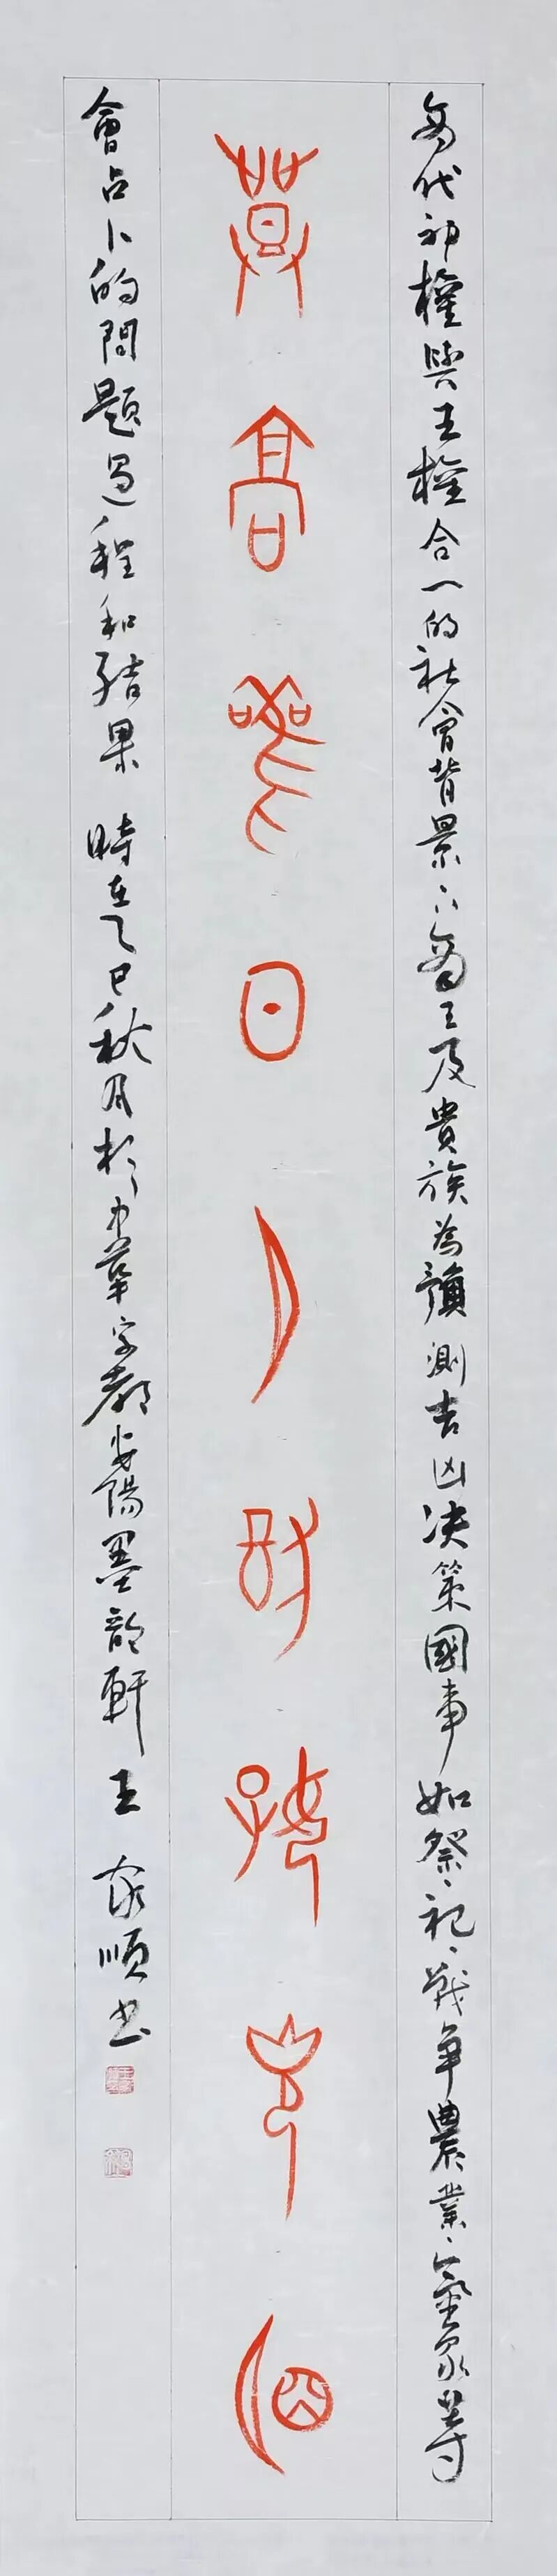 商代神權與王權合一的社會背景下商王及貴族為預測吉凶决策國事如祭、祀、戰争農業、氣象等
莫高喪日月啟好明
會占卜的問題過程和結果 時在乙巳秋月於中華字都安陽墨韵軒 王家順书